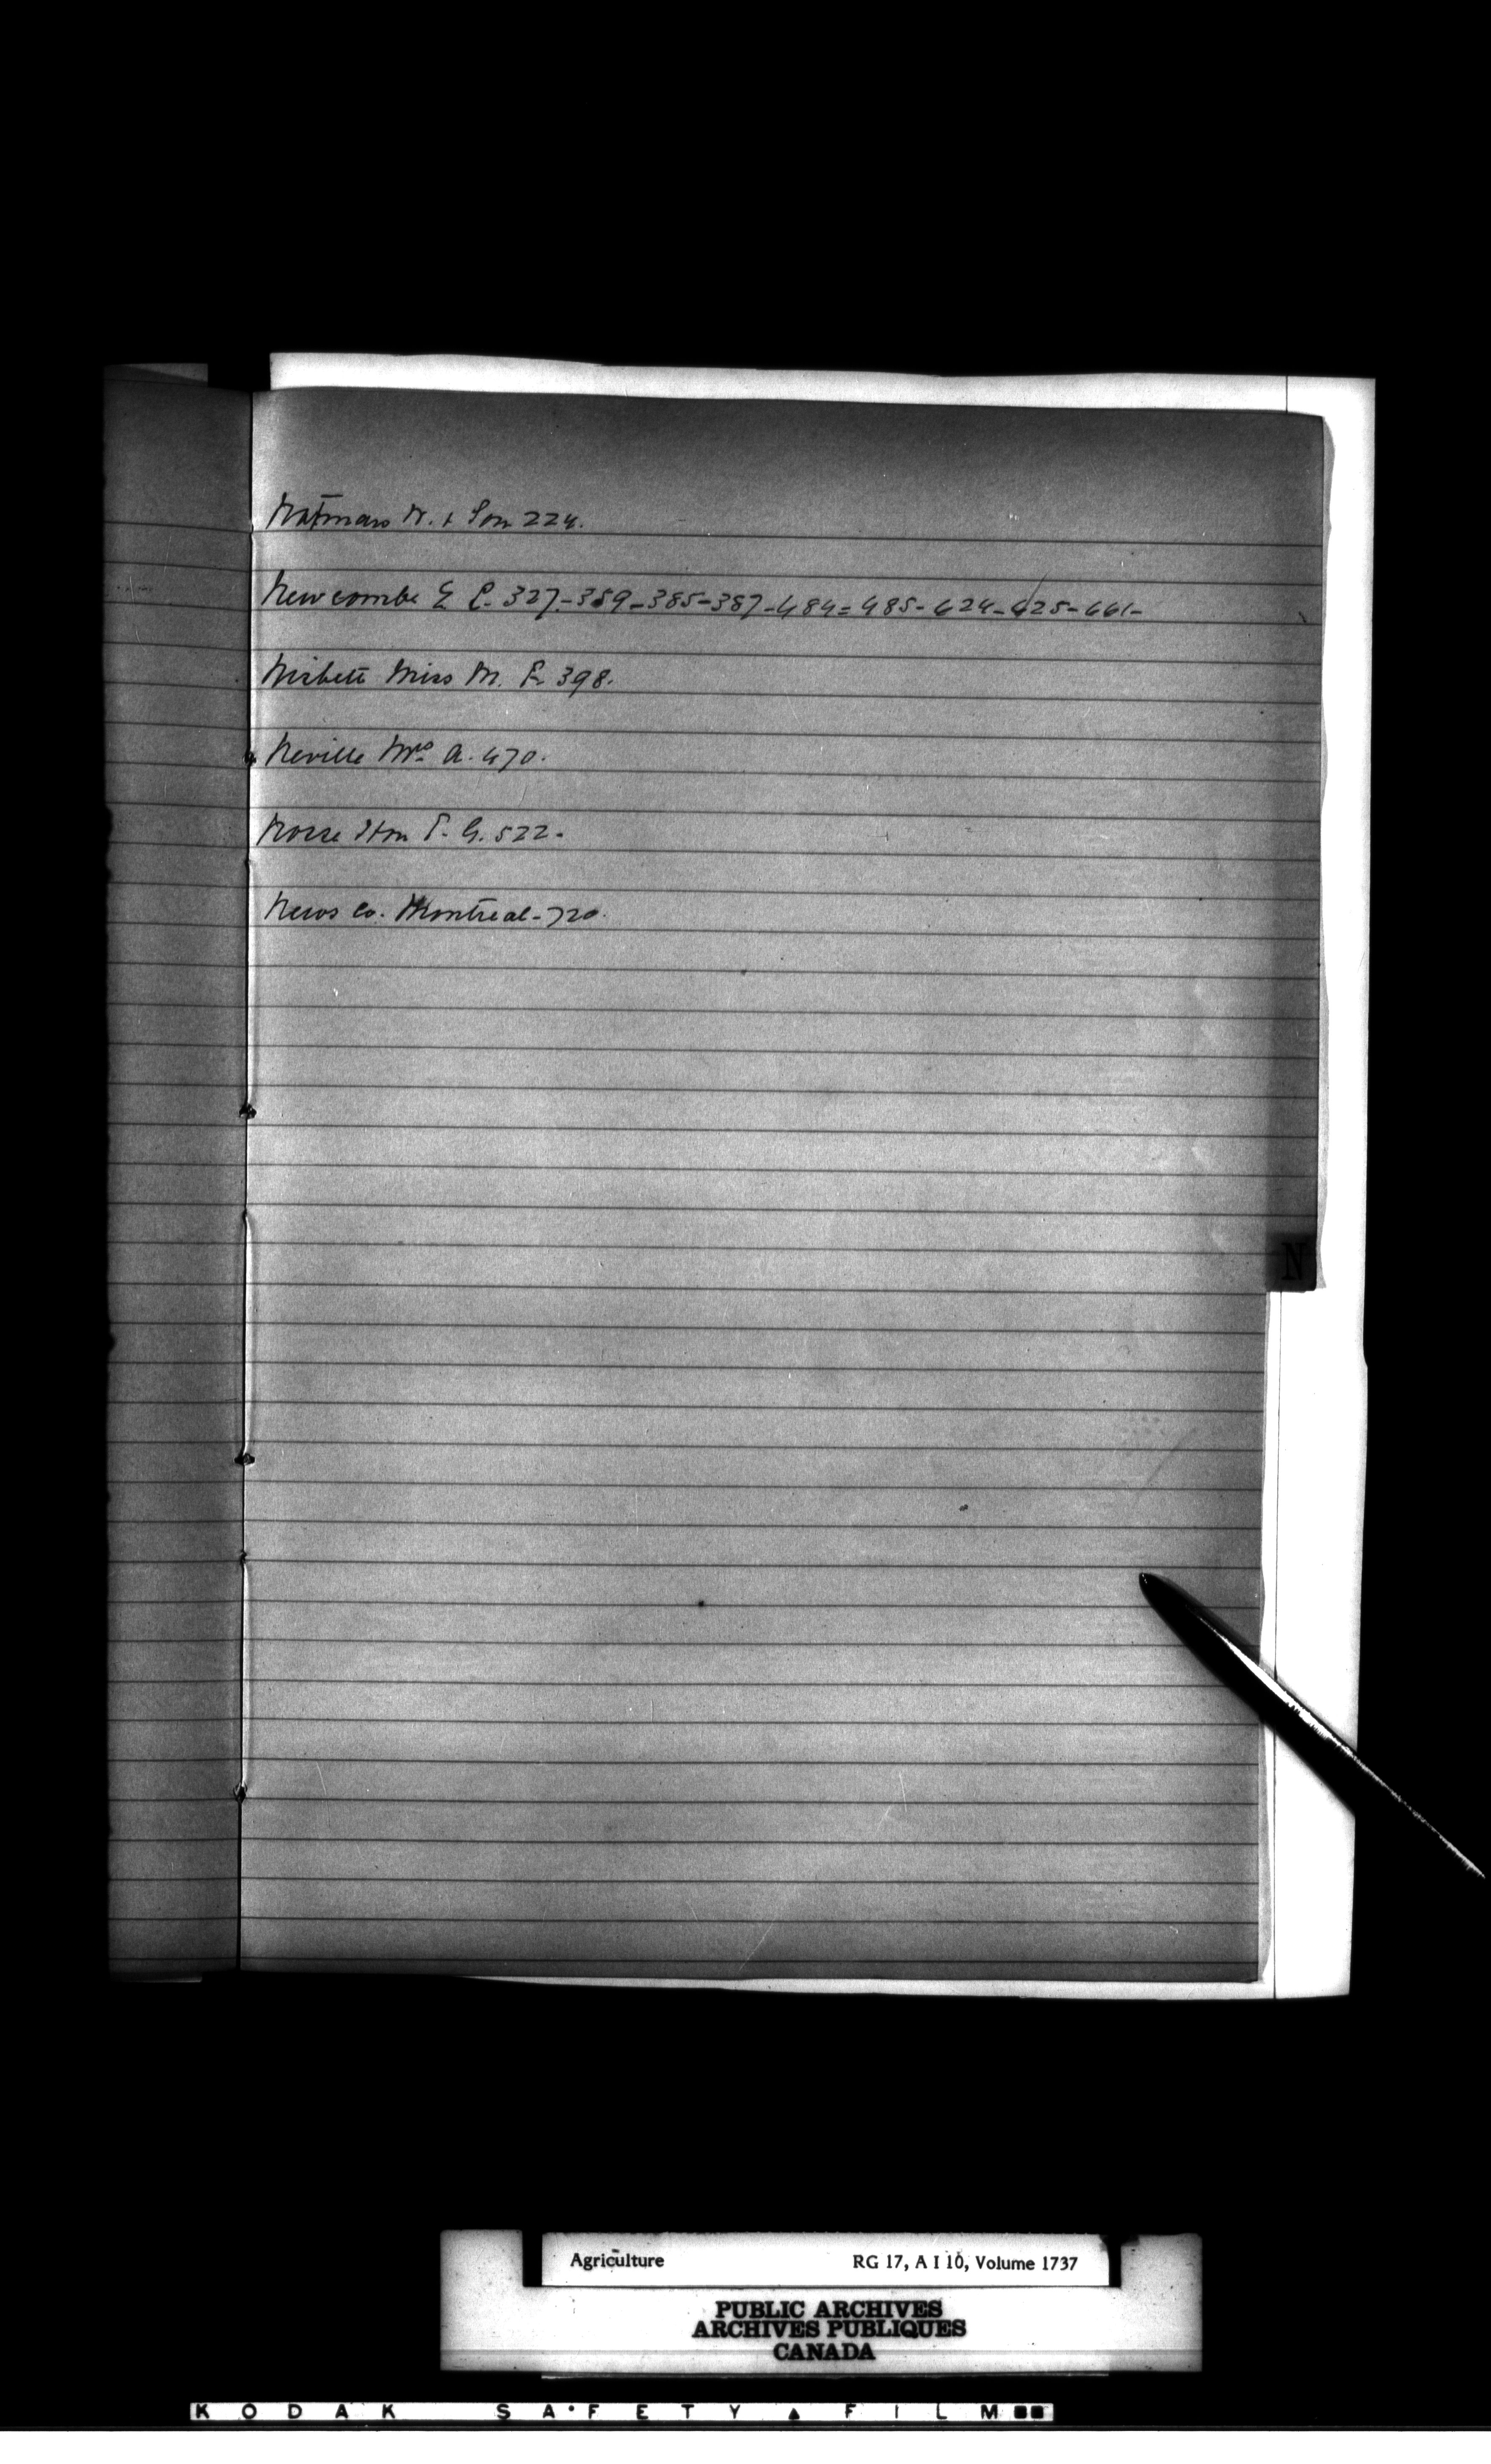 Notman N. & Son 224.
Newcombe E. L. 327-359-385-387-484=485-624-625-661-
Nisbett Miss M. E. 398.
Neville Mrs A. 470.
Hon T. G. 522-
News Co. Montreal-720.
N
Agriculture RG 17, A I 10, Volume 1737
PUBLIC ARCHIVES
ARCHIVES PUBLIQUES
CANADA
KODAK SAFETY FILM